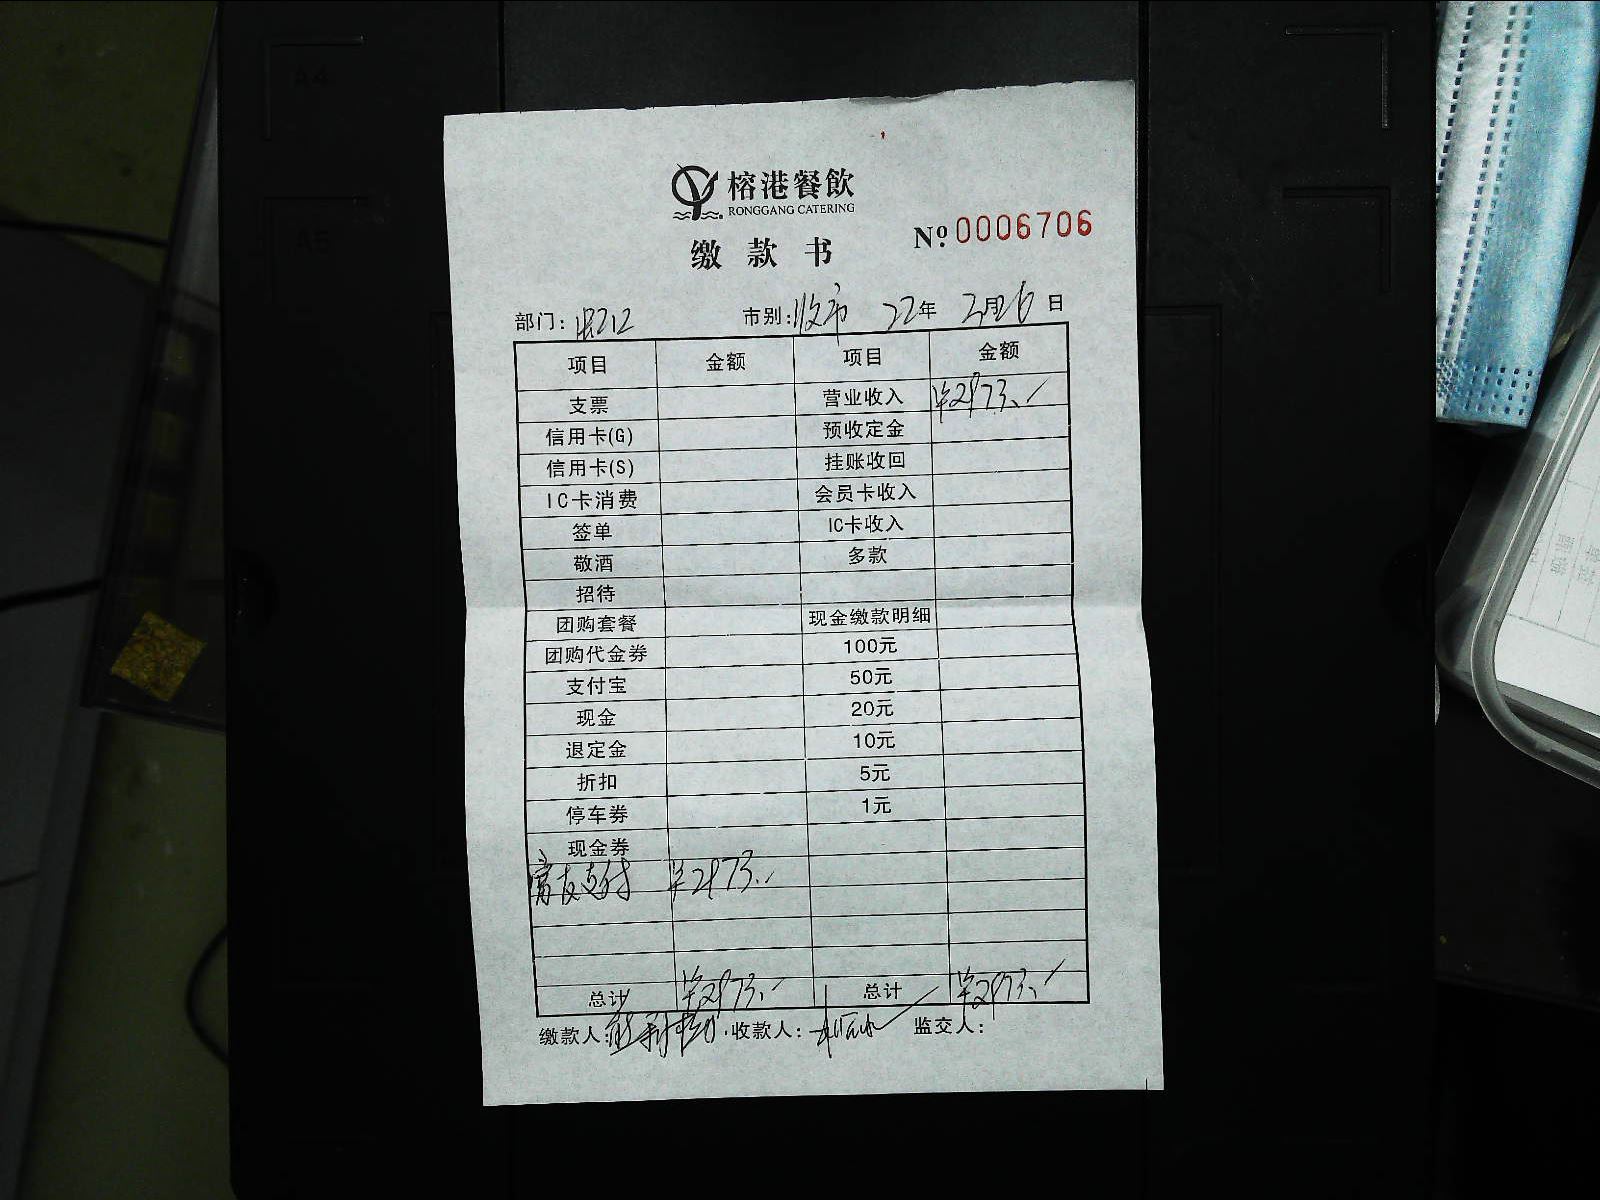 A4
A5
榕港餐飲
RONGGANG CATERING
缴款书
Nº 0006706
部门: 市别:收市 22年 2月26日
项目 金额 项目 金额
支票 营业收入 ¥2973.
信用卡(G) 预收定金
信用卡(S) 挂账收回
IC卡消费 会员卡收入
签单 IC卡收入
敬酒 多款
招待
团购套餐 现金缴款明细
团购代金券 100元
支付宝 50元
现金 20元
退定金 10元
折扣 5元
停车券 1元
现金券
支付 ¥2973.
总计 ¥2973. 总计 ¥2973.
缴款人: 收款人: 监交人: